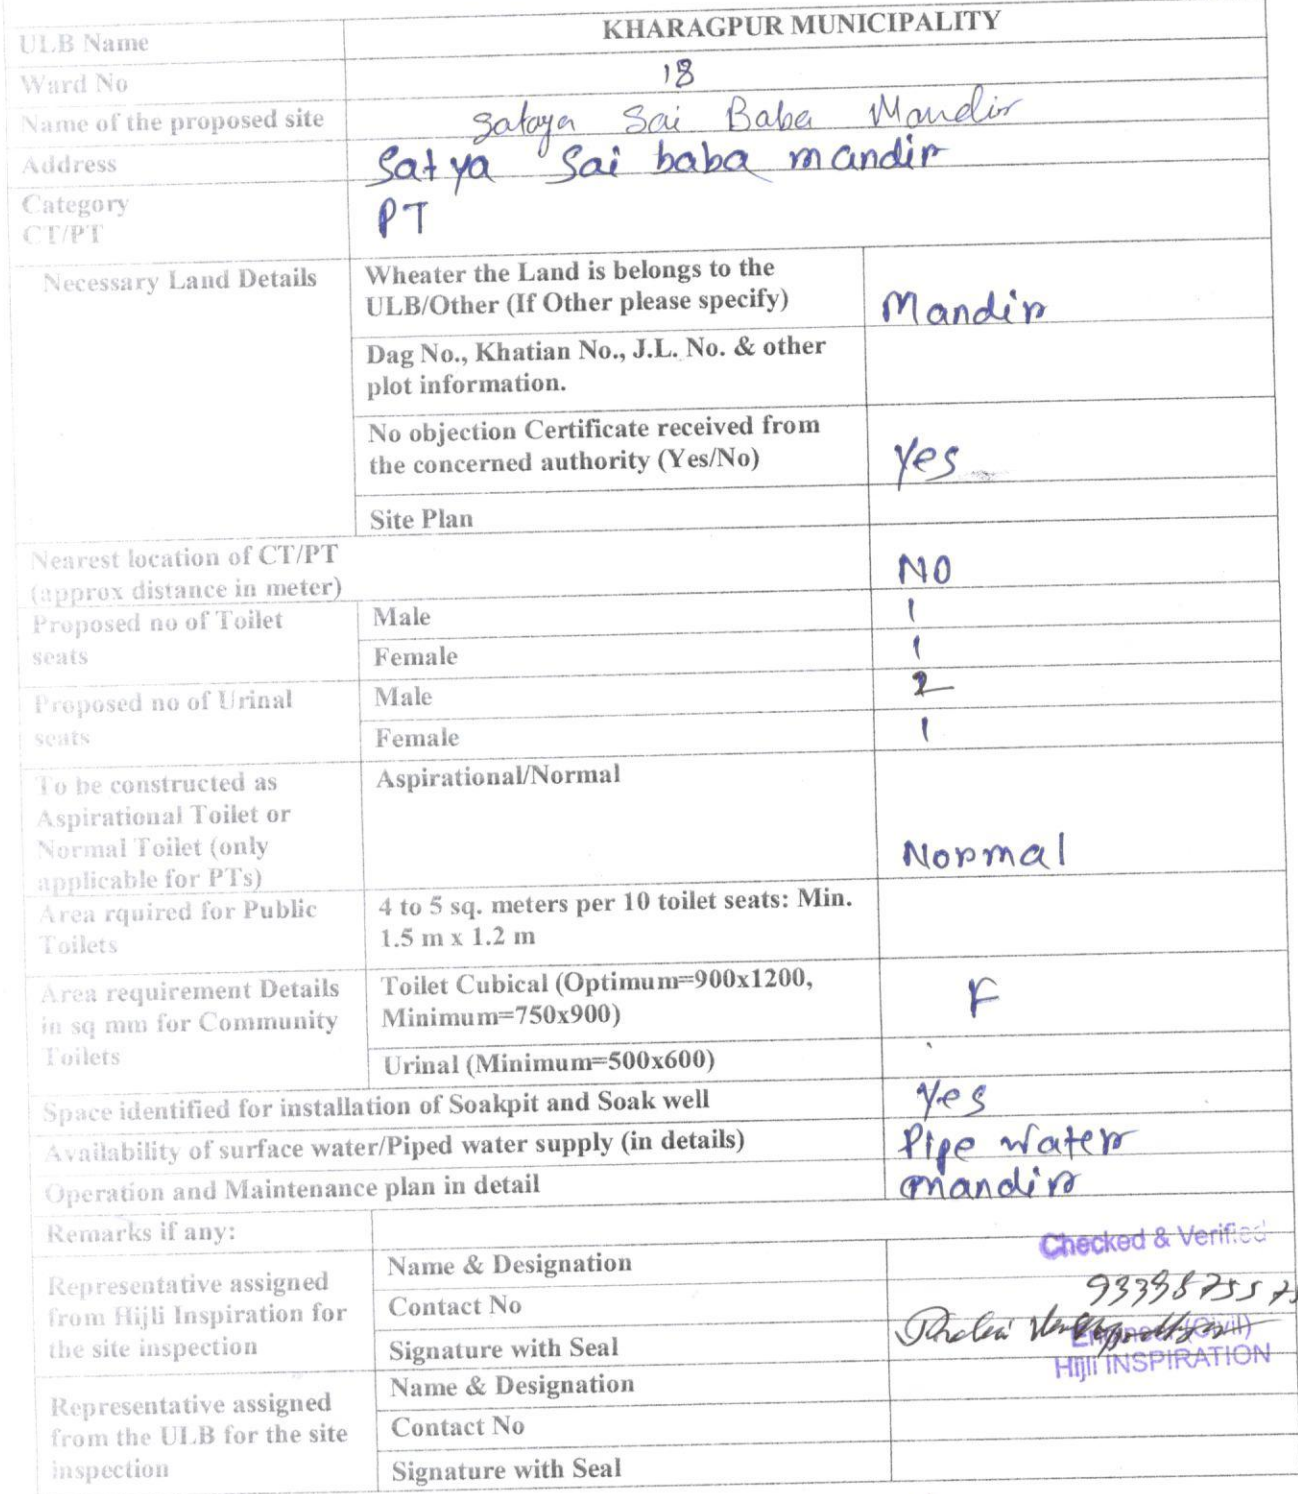 ULB Name KHARAGPUR MUNICIPALITY
Ward No 18
Name of the proposed site Sataya Sai Baba Mandir
Address Satya Sai baba mandir
Category
CT/PT PT
Necessary Land Details Wheater the Land is belongs to the
ULB/Other (If Other please specify) Mandir
Dag No., Khatian No., J.L. No. & other
plot information.
No objection Certificate received from
the concerned authority (Yes/No) Yes
Site Plan
Nearest location of CT/PT
(approx distance in meter) NO
Proposed no of Toilet
seats
Male 1
Female 1
Proposed no of Urinal
seats
Male 2
Female 1
To be constructed as
Aspirational Toilet or
Normal Toilet (only
applicable for PTs)
Aspirational/Normal
Normal
Area rquired for Public
Toilets
4 to 5 sq. meters per 10 toilet seats: Min.
1.5 m x 1.2 m
Area requirement Details
in sq mm for Community
Toilets
Toilet Cubical (Optimum=900x1200,
Minimum=750x900)
F
Urinal (Minimum=500x600)
Space identified for installation of Soakpit and Soak well Yes
Availability of surface water/Piped water supply (in details) Pipe Water
Operation and Maintenance plan in detail mandir
Remarks if any:
Checked & Verified
Representative assigned
from Hijli Inspiration for
the site inspection
Name & Designation
Contact No
Signature with Seal
Engineer (Civil)
Hijli INSPIRATION
Representative assigned
from the ULB for the site
inspection
Name & Designation
Contact No
Signature with Seal